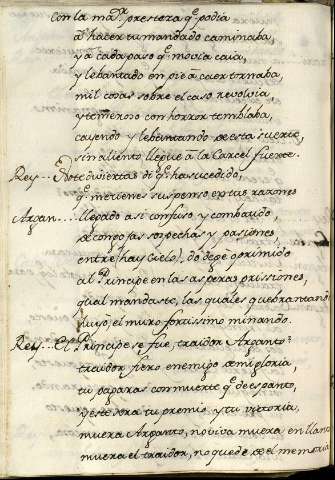 Con la mar. presteza q. podia
a hazer tu mandado caminaba,
y a cada paso q. movia caia,
y lebantado en pie a caer tornaba,
mil cosas sobre el caso rebolvia
y temeroso con horror temblaba,
cayendo y lebantando de esta suerte,
sin aliento llegue a la Carcel fuerte.
Rey -- No te diviertas di q. ha sucedido,
q. me tienes suspenso en tus razones
Argan.... Llegado asi confuso, y
de congojas sospechas y pasiones
entre, hay Cielo, do dege oprimido
al Principe en las asperas prissiones,
qual mandaste, las quales quebrantando
huyo, el muro fortissimo minando.
Rey... El Principe se fue, traidor Arganto?
traidor fiero enemigo de mi gloria,
tu pagaras con muerte q. de espanto,
y este sera tu premio, y tu vitoria,
muera Arganto, no viva muera en llanto
muera el traidor, no quede de el memoria